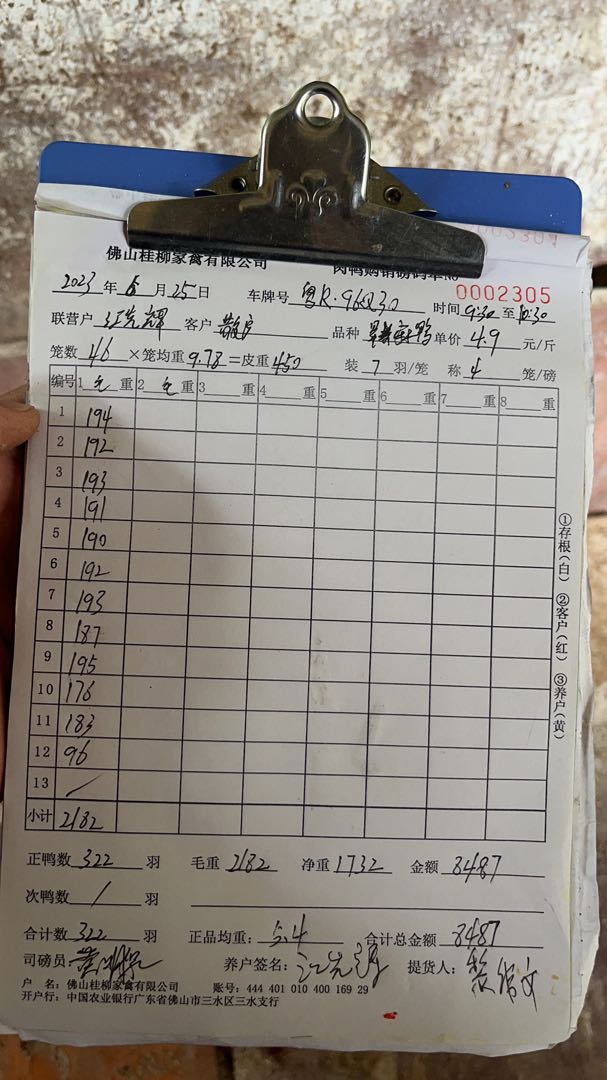 0002304
佛山桂柳家禽有限公司 肉鸭购销磅码单No
0002305
2023年6月25日 车牌号 粤R·96Q30 时间9:30至10:30
联营户 江先辉 客户 散户 品种 单价4.9元/斤
笼数46×笼均重9.78=皮重450 装7羽/笼 称4笼/磅
编号 1毛重 2毛重 3重 4重 5重 6重 7重 8重
1 194
2 192
3 193
4 191
5 190
6 192
7 193
8 187
9 195
10 176
11 183
12 96
13 /
小计 2182
①存根(白) ②客户(红) ③养户(黄)
正鸭数322羽 毛重2182 净重1732 金额8487
次鸭数/羽
合计数322羽 正品均重:5.4 合计总金额8487
司磅员: 养户签名: 江先辉 提货人:
户 名:佛山桂柳家禽有限公司 账号:444 401 010 400 169 29
开户行:中国农业银行广东省佛山市三水区三水支行